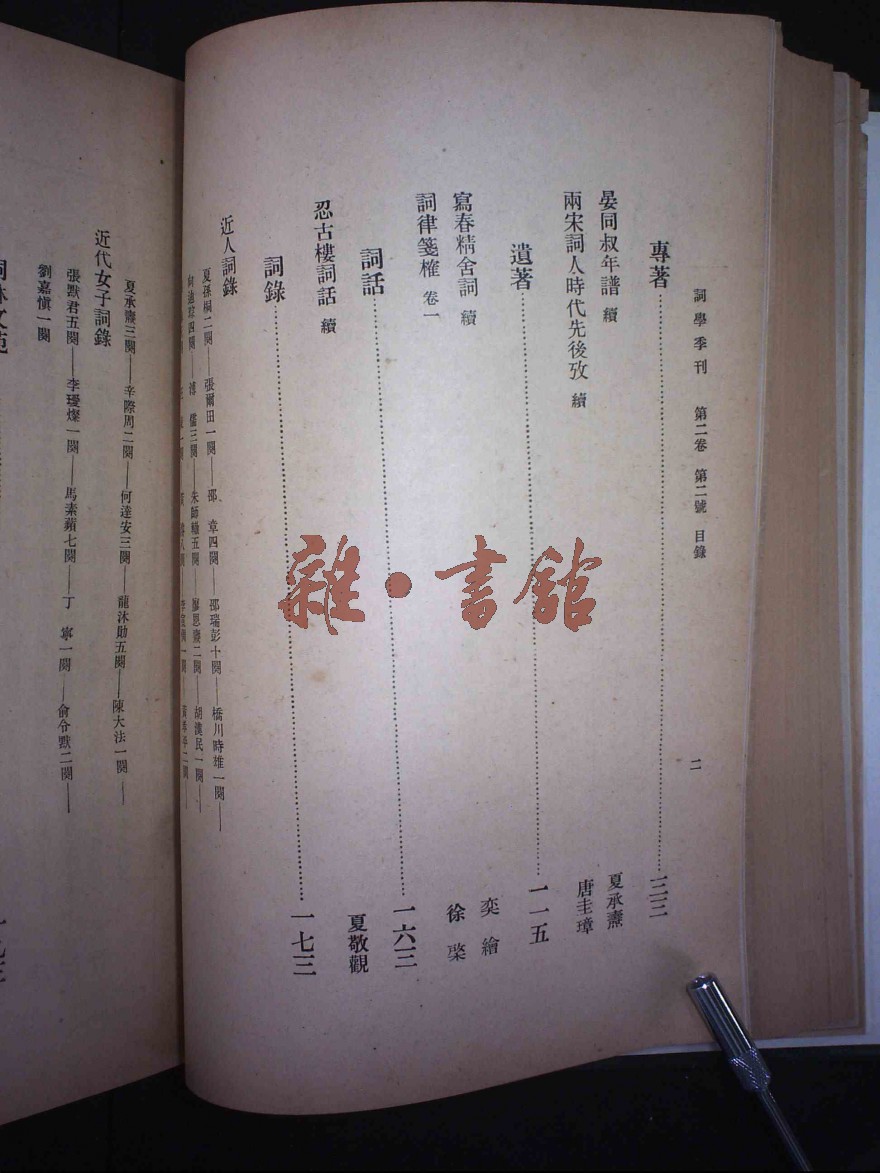 詞學季刊 第二卷 第二號 目錄 二
專著……三三
晏同叔年譜 續 夏承燾
兩宋詞人時代先後攷 續 唐圭璋
遺著……一一五
寫春精舍詞 續 奕繪
詞律箋榷 卷一 徐棨
詞話……一六三
忍古樓詞話 續 夏敬觀
詞錄……一七三
近人詞錄
夏孫桐二闋——張爾田一闋——邵 章四闋——邵瑞彭十闋——橋川時雄一闋——
向迪琮四闋——溥 儒三闋——朱師轍五闋——廖恩燾二闋——胡漢民一闋——
夏承燾三闋——辛際周二闋——何達安三闋——龍沐勛五闋——陳大法一闋——
近代女子詞錄
張默君五闋——李璦燦一闋——馬素蘋七闋——丁 寧一闋——俞令默二闋——
劉嘉慎一闋
雜·書館